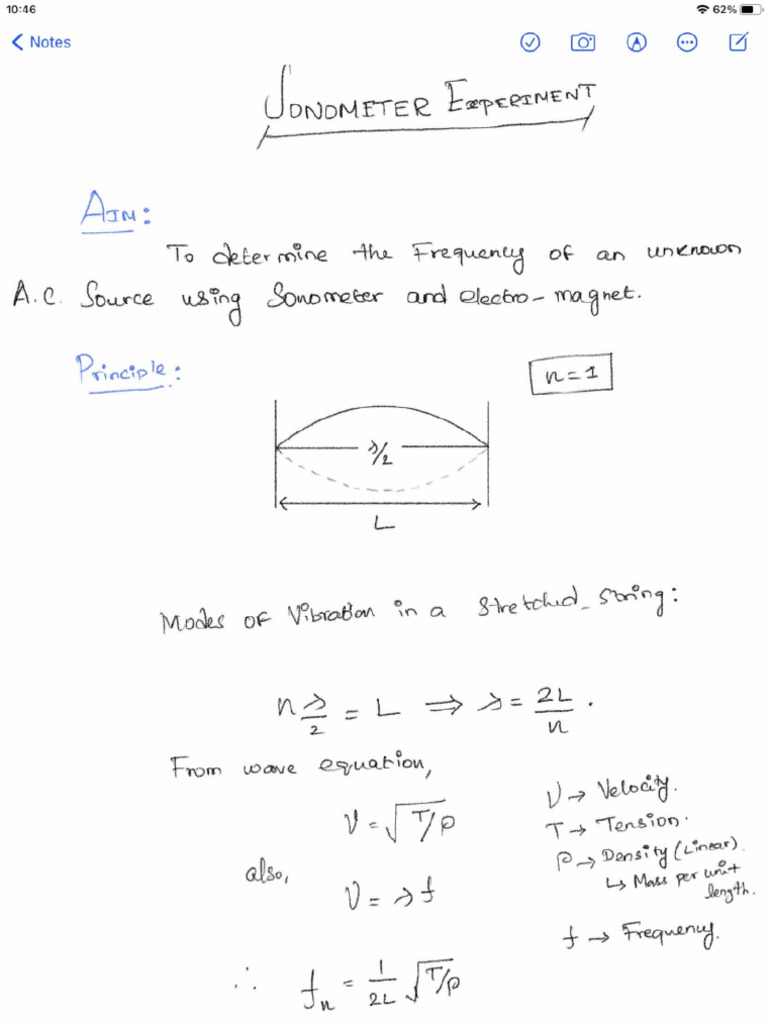 10:46
62%
Notes
SONOMETER EXPERIMENT
AIM:
To determine the Frequency of an unknown
A.C. Source using Sonometer and electro-magnet.
Principle:
n=1
λ/2
L
Modes of Vibration in a stretched string:
n λ/2 = L ⇒ λ = 2L/n .
From wave equation,
V = √T/ρ
also,
V = λf
∴ fn = 1/2L √T/ρ
V → Velocity.
T → Tension.
ρ → Density (Linear).
↳ Mass per unit
length.
f → Frequency.